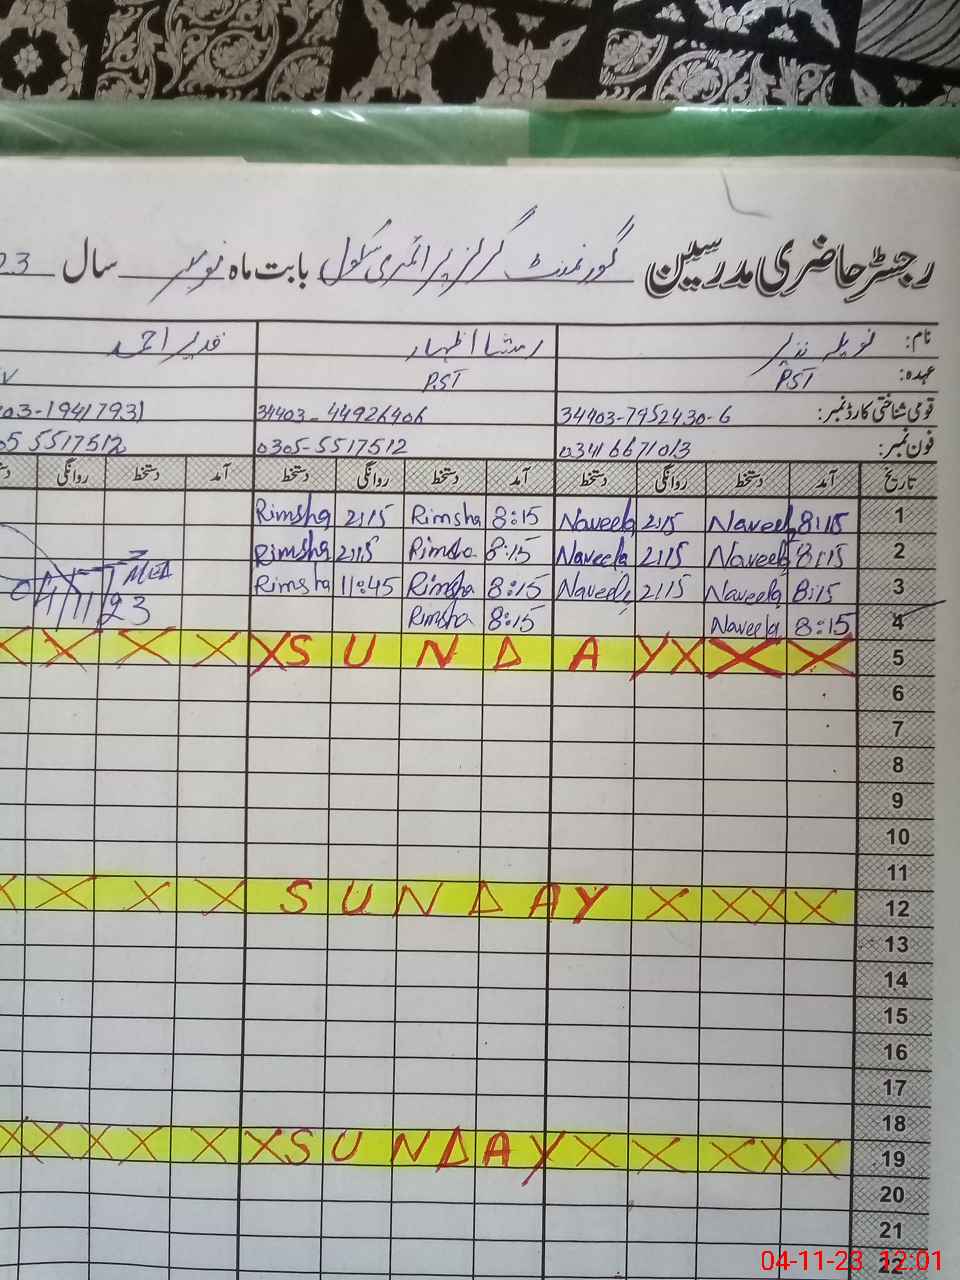 رجسٹر حاضری مدرسین گورنمنٹ گرلز پرائمری سکول بابت ماہ نومبر سال 23
نام: نویلہ نذیر رمشا اظہار قدیر احمد
عہدہ: PST PST
قومی شناختی کارڈ نمبر: 34403-7952430-6 34403-44926406 403-19417931
فون نمبر: 03416671013 0305-5517512 05 5517512
تاریخ آمد دستخط روانگی دستخط آمد دستخط روانگی دستخط آمد دستخط روانگی
1 8:15 Naveela 2:15 Naveela 8:15 Rimsha 2:15 Rimsha
2 8:15 Naveela 2:15 Naveela 8:15 Rimsha 2:15 Rimsha
3 8:15 Naveela 2:15 Naveela 8:15 Rimsha 11:45 Rimsha MEA
4 8:15 Naveela 8:15 Rimsha 04/11/23
5 X X X X S U N D A Y X X X X X
6
7
8
9
10
11
12 X X X X S U N D A Y X X X X X
13
14
15
16
17
18
19 X X X X X X S U N D A Y X X X X X
20
21
22
04-11-23 12:01